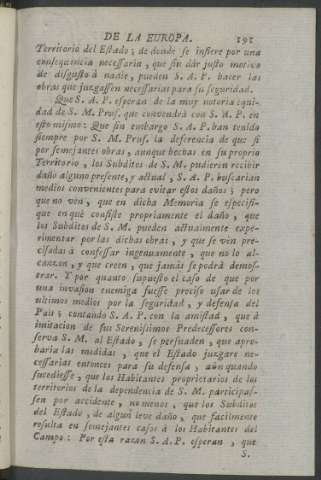 DE LA EUROPA. 191
Territorio del Estado; de donde se infiere por una
consequencia necessaria, que sin dàr justo motivo
de disgusto à nadie, pueden S. A. P. hacer las
obras que juzgassen necessarias para su seguridad.
Que S. A. P. esperan de la muy notoria equi-
dad de S. M. Prus. que convendrà con S. A. P. en
esto mismo: Que sin embargo S. A. P. han tenido
siempre por S. M. Prus. la deferencia de que si
por semejantes obras, aunque hechas en su proprio
Territorio, los Subditos de S. M. pudieren recivir
daño alguno presente, y actual, S. A. P. buscarian
medios convenientes para evitar estos daños; pero
que no vèn, que en dicha Memoria se especifi-
que en què consiste propriamente el daño, que
los Subditos de S. M. pueden actualmente expe-
rimentar por las dichas obras, y que se vèn pre-
cisados à confessar ingenuamente, que no lo al-
canzan, y que creen, que jamàs se podrà demos-
trar. Y por quanto supuesto el caso de que por
una invasion enemiga fuesse preciso usar de los
ultimos medios por la seguridad, y defensa del
Pais; contando S. A. P. con la amistad, que à
imitacion de sus Serenissimos Predecessores con-
serva S. M. al Estado, se persuaden, que apro-
baria las medidas, que el Estado juzgare ne-
cessarias entonces para su defensa, aùn quando
sucediesse, que los Habitantes proprietarios de los
territorios de la dependencia de S. M. participas-
sen por accidente, no menos, que los Subditos
del Estado, de algun leve daño, que facilmente
resulta en semejantes casos à los Habitantes del
Campo: Por esta razon S. A. P. esperan, que
S.